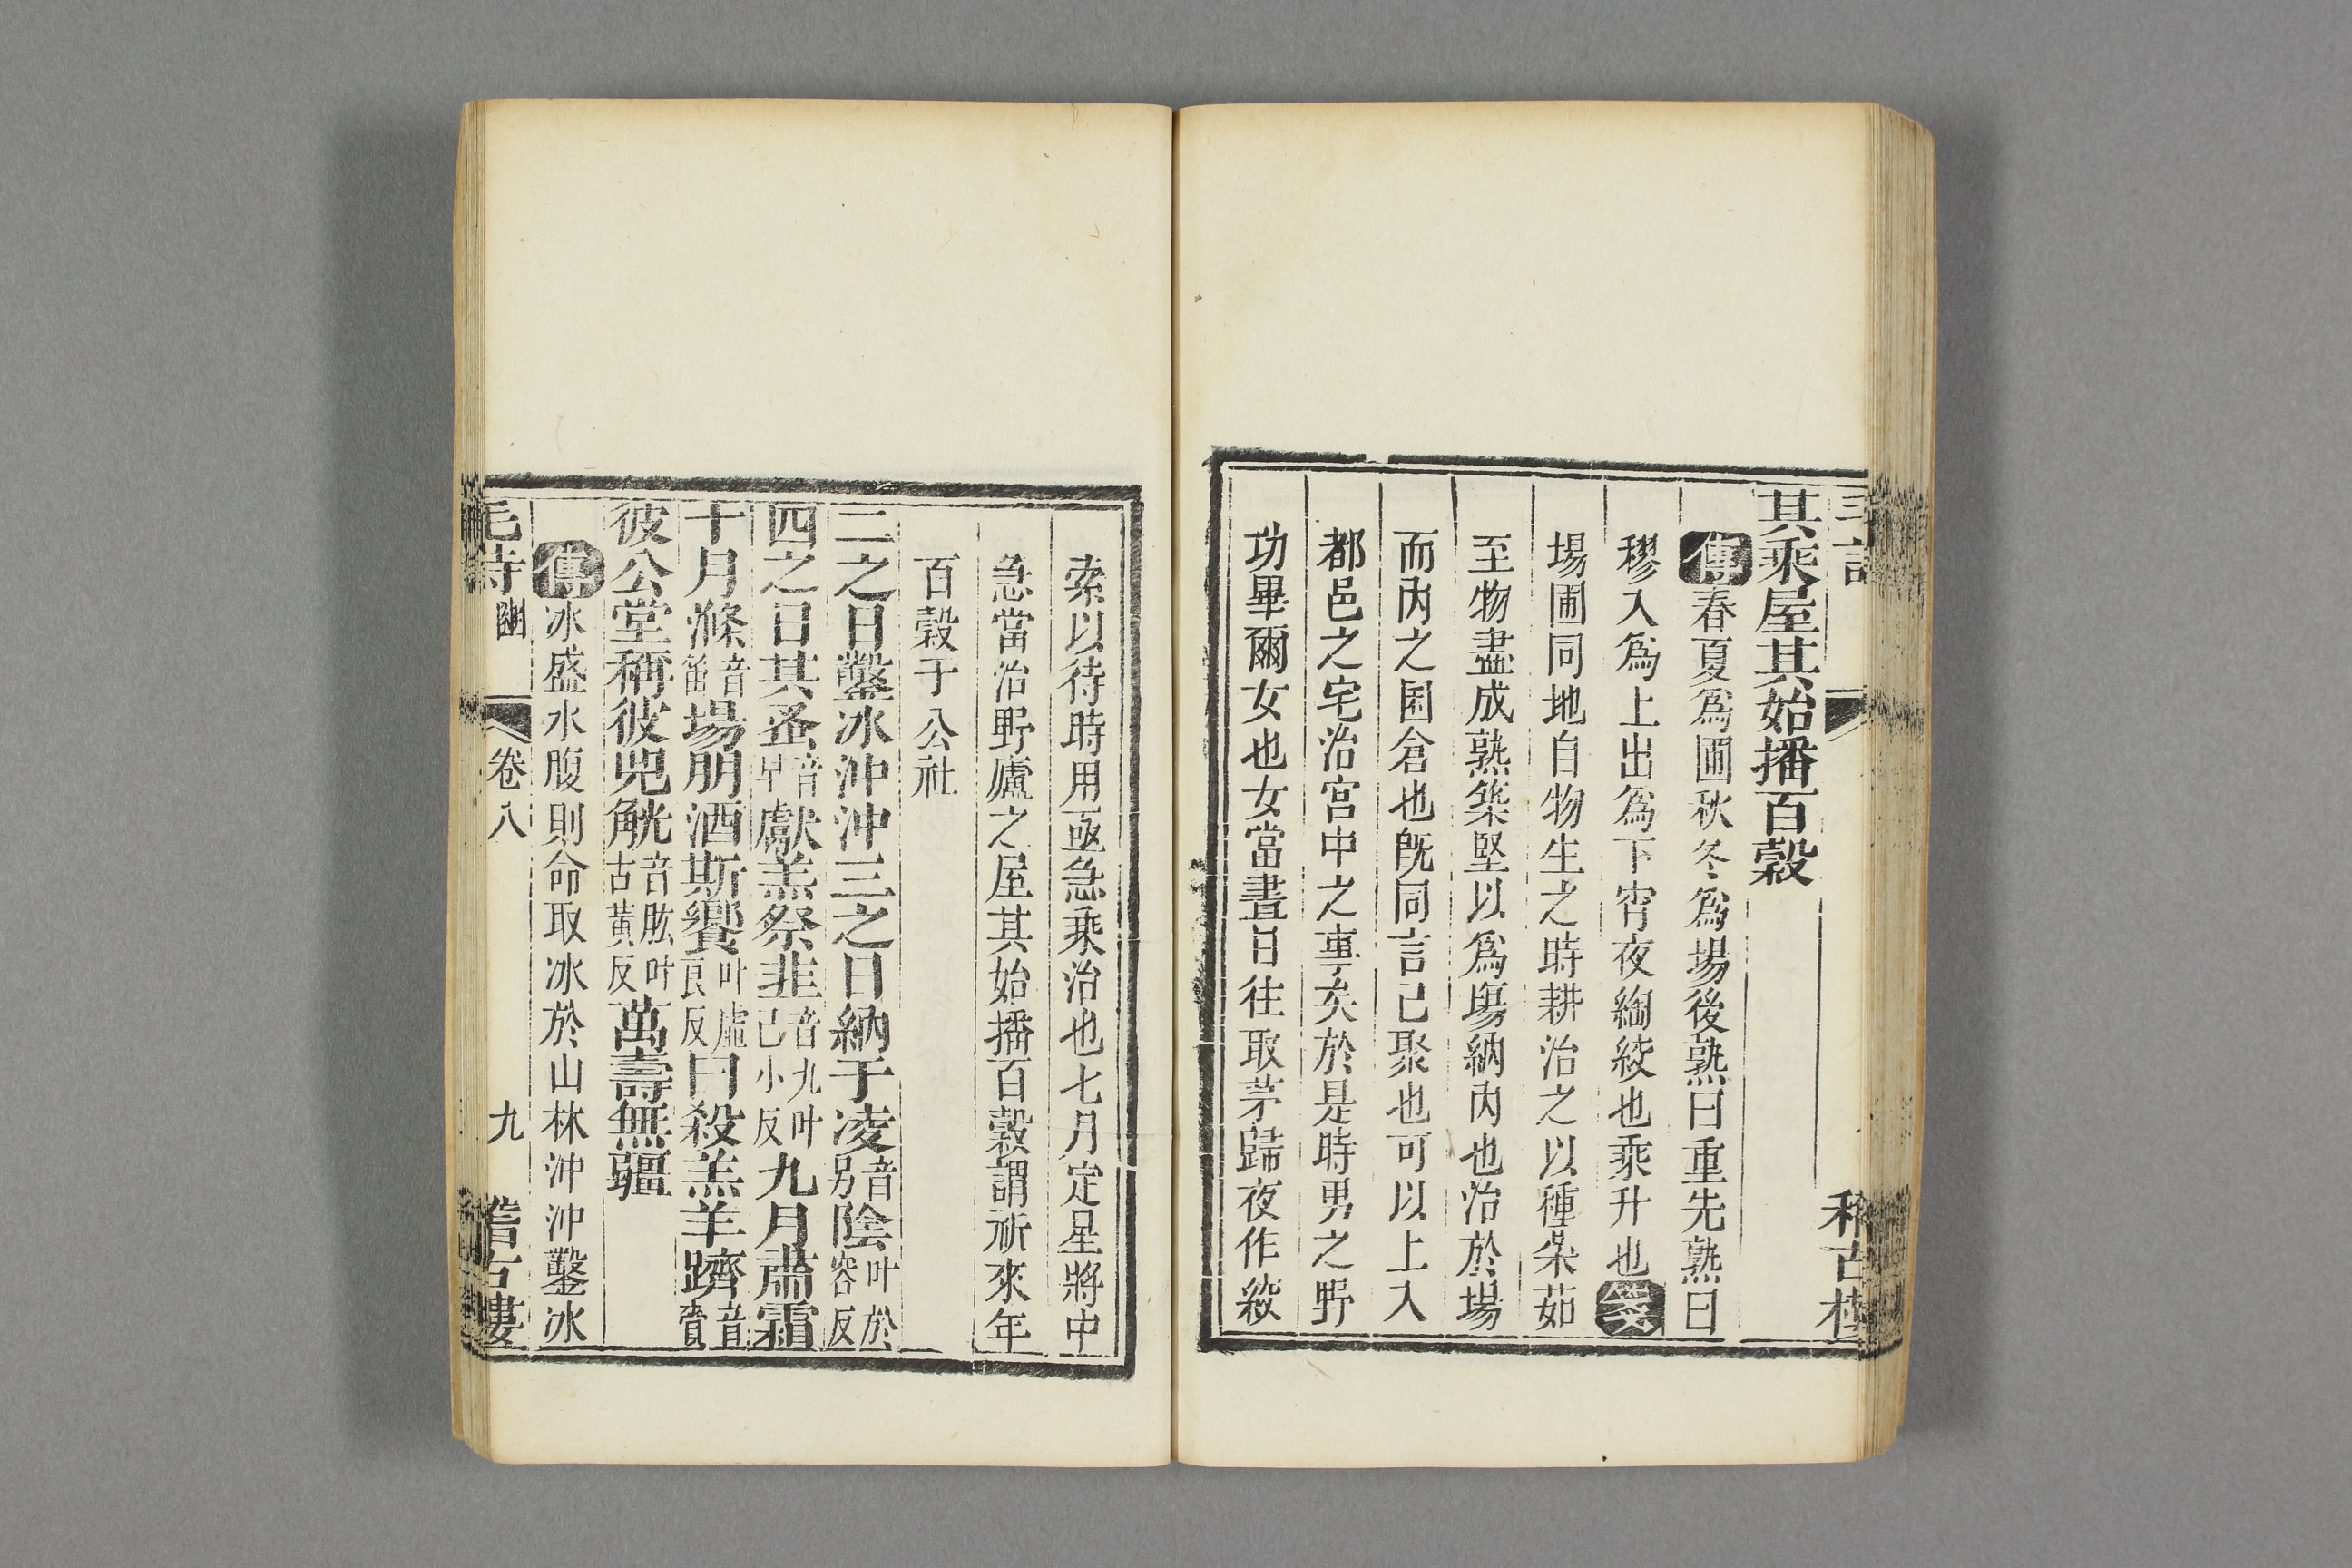 其乘屋其始播百穀
傳春夏爲圃秋冬爲場後熟曰重先熟曰
穋入爲上出爲下宵夜綯絞也乘升也箋
場圃同地自物生之時耕治之以種菜茹
至物盡成熟築堅以爲塲納内也治於場
而内之囷倉也旣同言己聚也可以上入
都邑之宅治宮中之事矣於是時男之野
功畢爾女也女當晝日往取茅歸夜作絞
索以待時用亟急乘治也七月定星將中
急當治野廬之屋其始播百穀謂祈來年
百穀于公社
二之日鑿冰沖沖三之日納于凌音另陰叶於容反
四之日其蚤音早獻羔祭韭音九叶己小反九月肅霜
十月滌音笛場朋酒斯饗叶虛良反曰殺羔羊躋音賫
彼公堂稱彼兕觥音肱叶古黃反萬壽無疆
傳冰盛水腹則命取冰於山林沖沖鑿冰
毛詩 豳 卷八 九 稽古樓